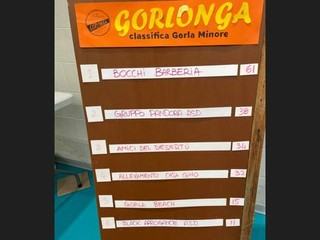 GORLONGA
classifica Gorla Minore
1 BOCCHI BARBERIA 61
2 GRUPPO PANDORA ASD 38
3 AMICI DEL DESERTO 34
4 ALLEVAMENTO CASA GINO 32
5 GORLA BEACH 15
6 BLACK ARROGANCE A.S.D 11